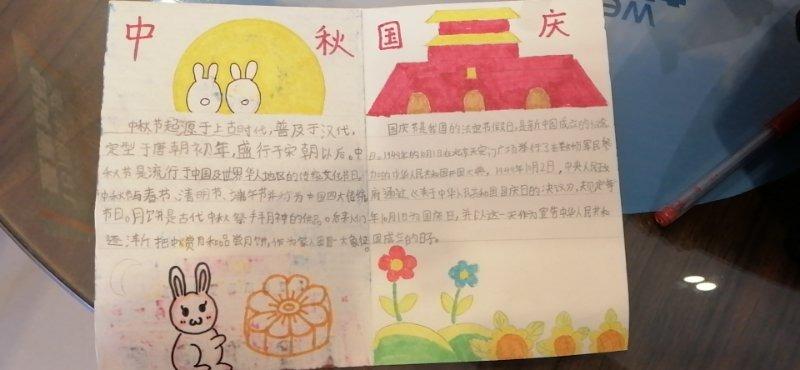 中秋
国庆
中秋节起源于上古时代,普及于汉代,
定型于唐朝初年,盛行于宋朝以后。中
秋节是流行于中国及世界华人地区的传统文化节日。
中秋节与春节、清明节、端午节并称为中国四大传统
节日。月饼是古代中秋祭拜月神的供品。后来人们
逐渐把中秋赏月和品赏月饼,作为家人团圆一大象征。
国庆节是我国的法定节假日,是新中国成立的纪念
日。1949年的10月1日在北京天安门广场举行了三十万军民参
加的中华人民共和国开国大典,1949年10月2日,中央人民政
府通过《关于中华人民共和国国庆日的决议》,规定每
年10月1日为国庆日,并以这一天作为宣告中华人民共和
国成立的日子。
WE